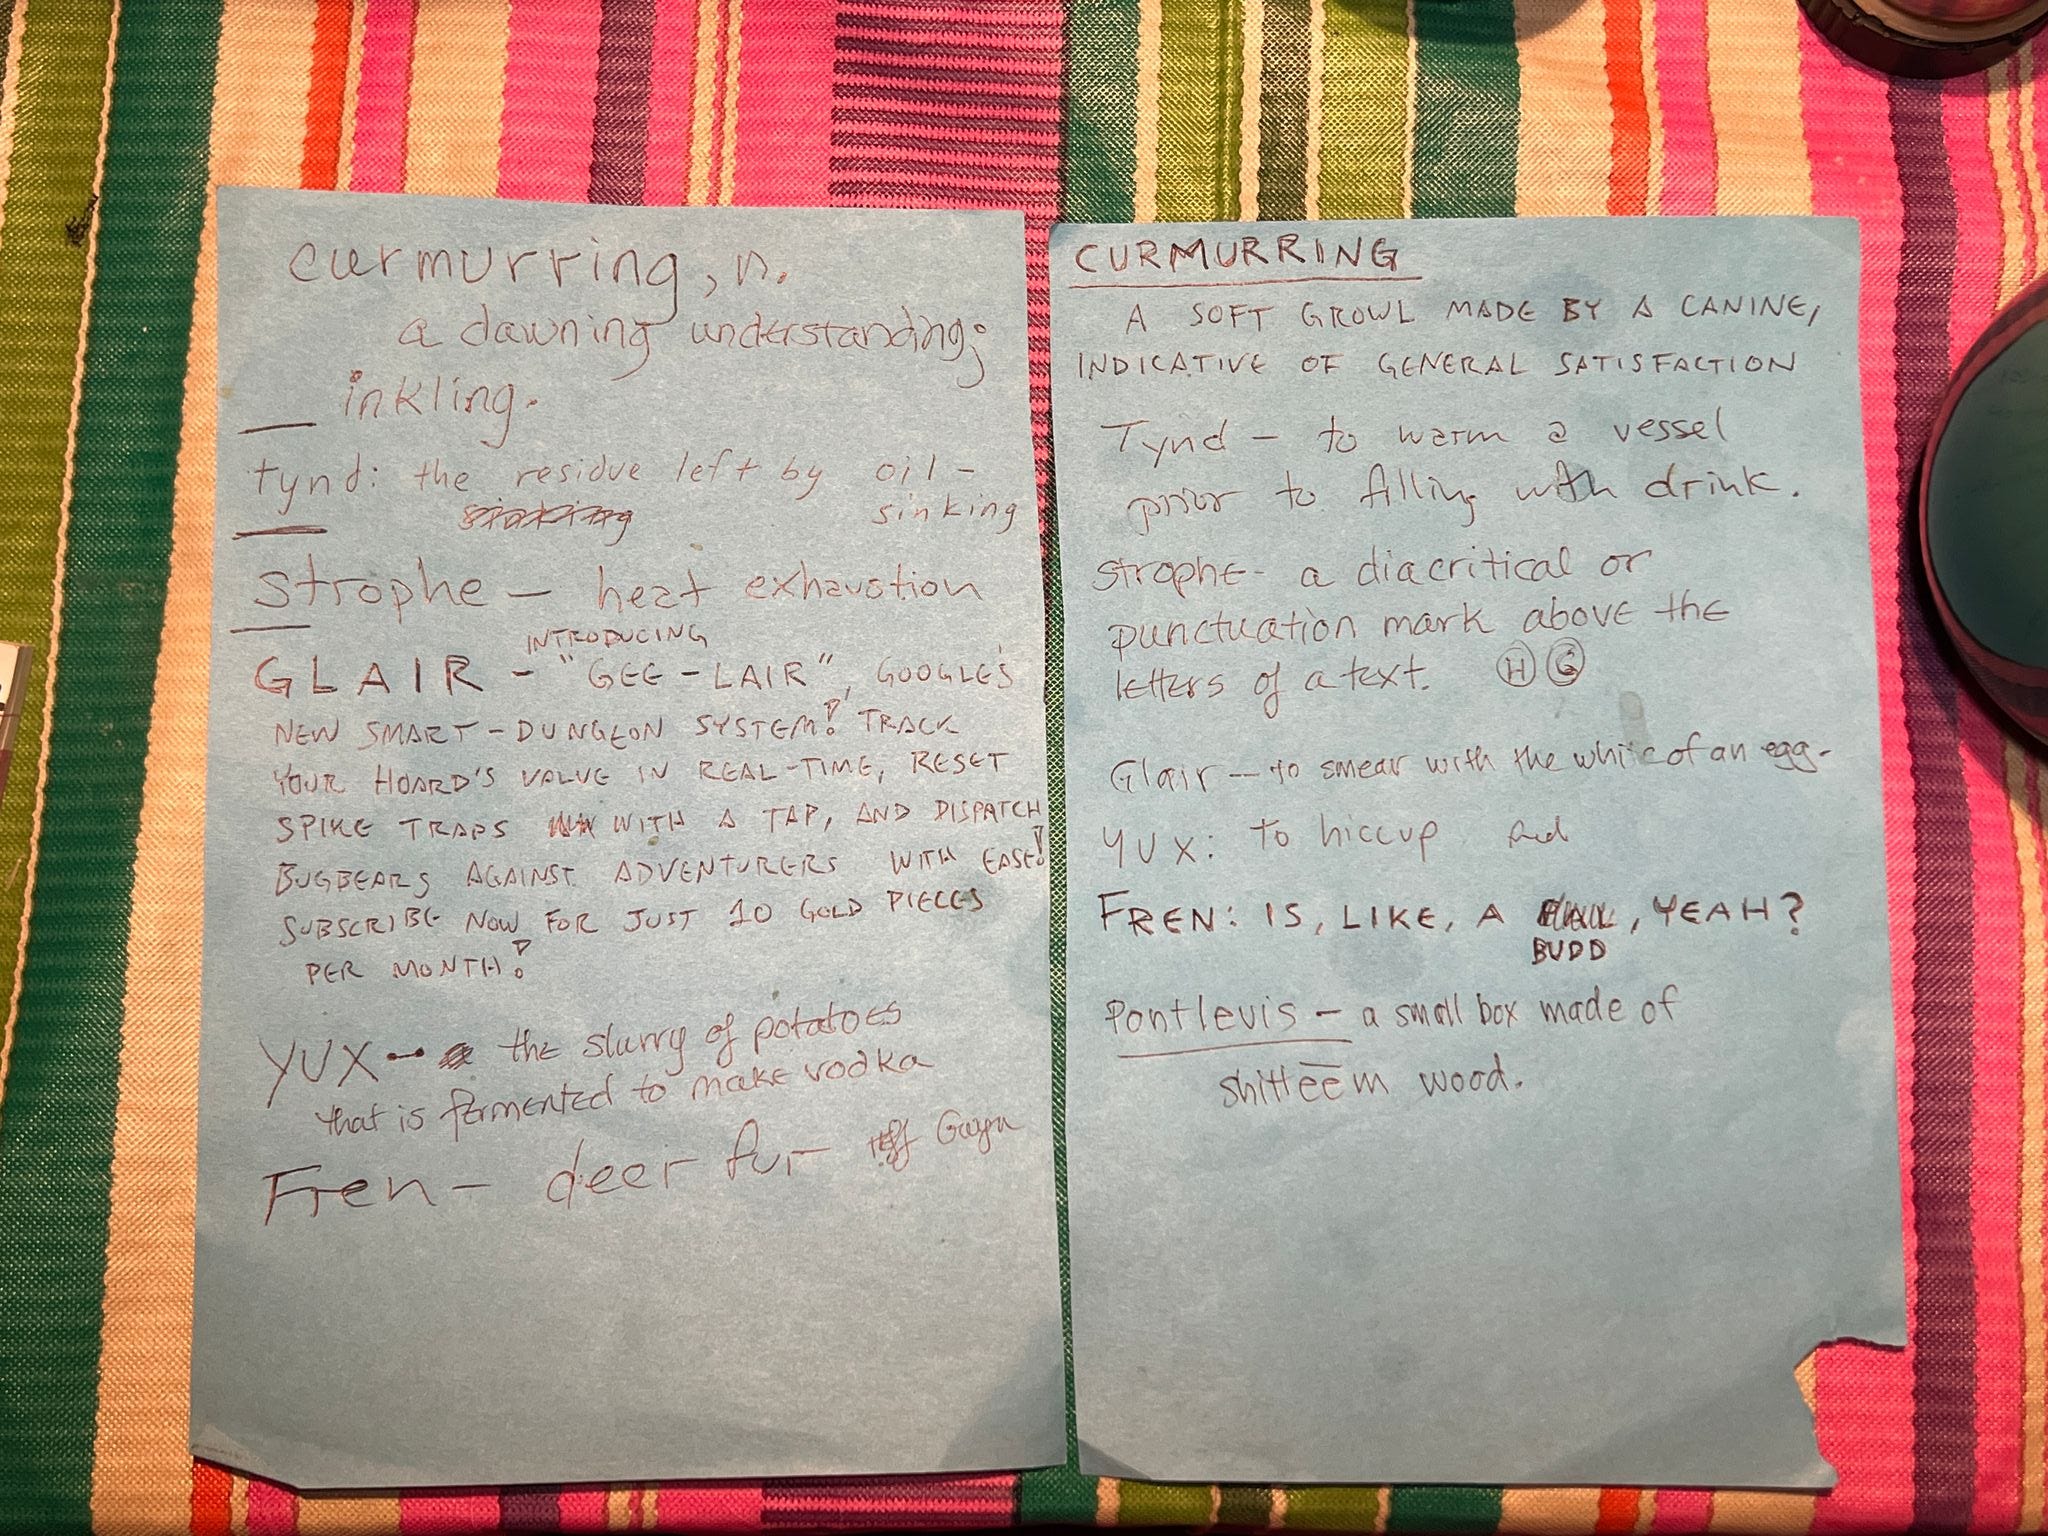 curmurring, n.
a dawning understanding;
inkling.
tynd: the residue left by oil-
sinking
strophe — heat exhaustion
INTRODUCING
GLAIR - "GEE-LAIR", GOOGLE'S
NEW SMART-DUNGEON SYSTEM! TRACK
YOUR HOARD'S VALUE IN REAL-TIME, RESET
SPIKE TRAPS WITH A TAP, AND DISPATCH
BUGBEARS AGAINST ADVENTURERS WITH EASE!
SUBSCRIBE NOW FOR JUST 10 GOLD PIECES
PER MONTH!
YUX — the slurry of potatoes
that is fermented to make vodka
Fren — deer fur
CURMURRING
A SOFT GROWL MADE BY A CANINE,
INDICATIVE OF GENERAL SATISFACTION
Tynd — to warm a vessel
prior to filling with drink.
strophe - a diacritical or
punctuation mark above the
letters of a text. H G
Glair — to smear with the white of an egg.
YUX: to hiccup
FREN: IS, LIKE, A , YEAH?
BUDD
Pontlevis — a small box made of
shittēēm wood.